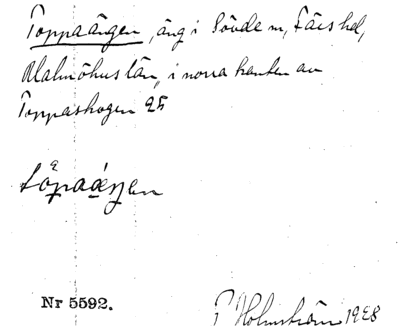 Toppaängen, äng i Sövde sn, Färs hd,
Malmöhus län, i norra kanten av
Toppaskogen

Nr 5592.
Holmström 1928